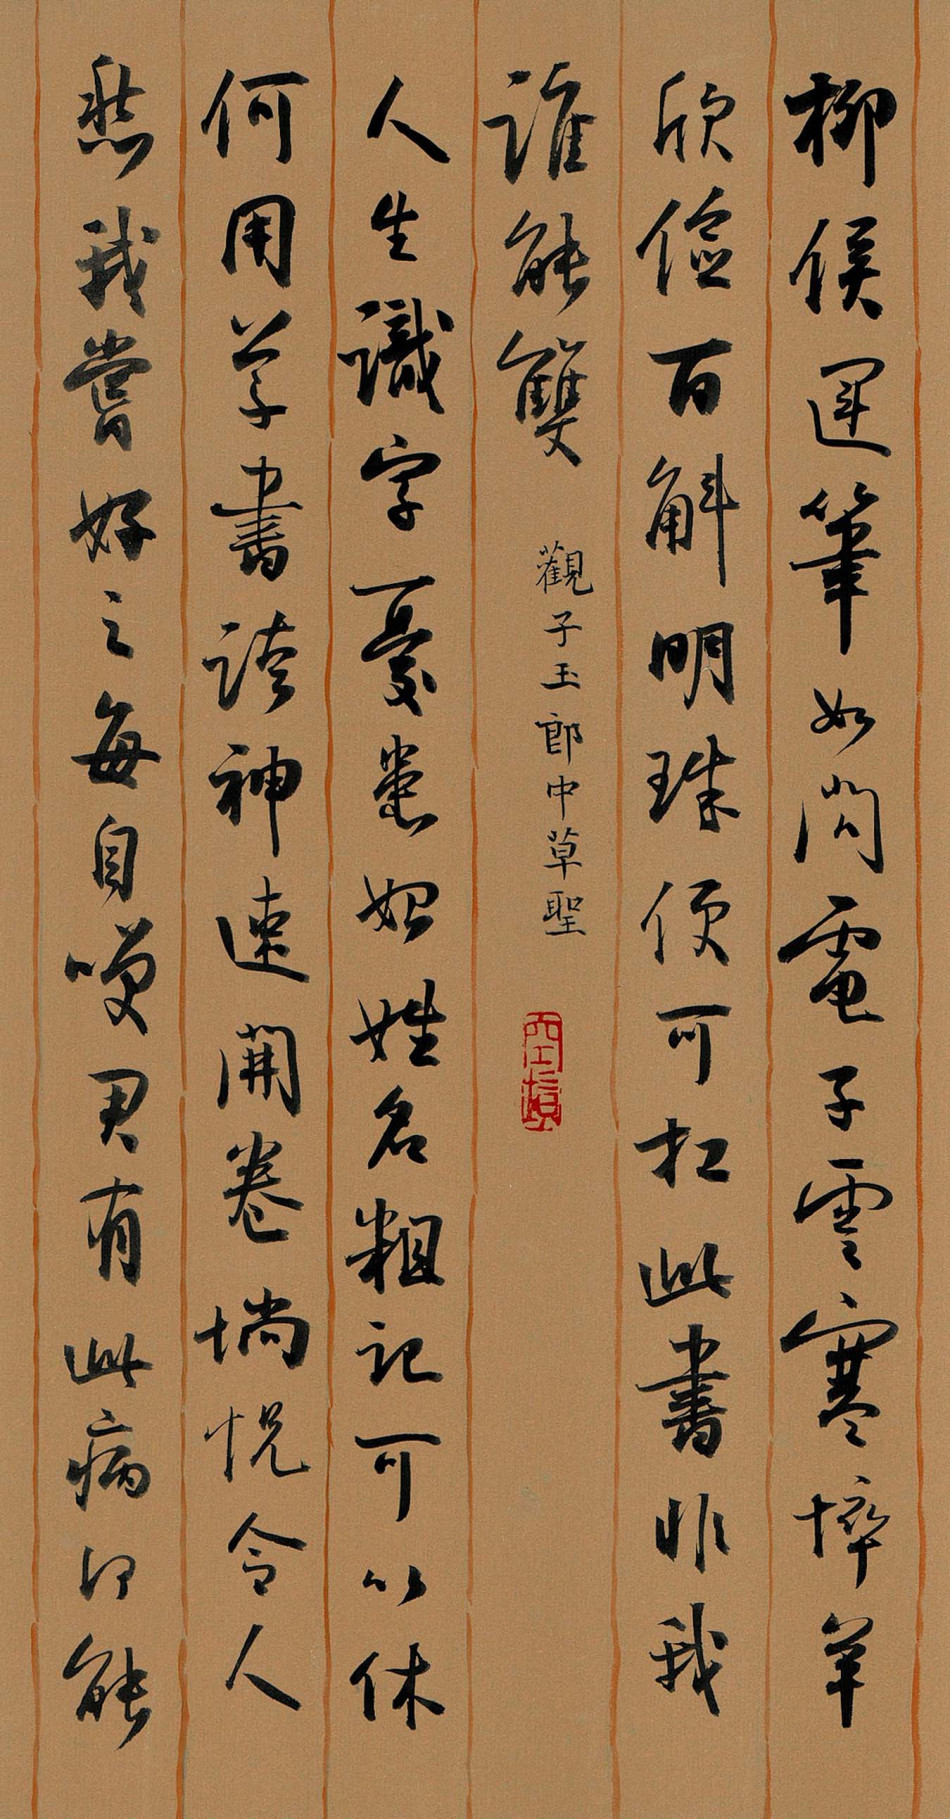 柳侯運筆如閃電子雲寒悴羊
欣儉百斛明珠便可扛此書非我
誰能雙
觀子玉郎中草聖
人生識字憂患始姓名粗記可以休
何用草書誇神速開卷惝怳令人
愁我嘗好之每自咲君有此病何能